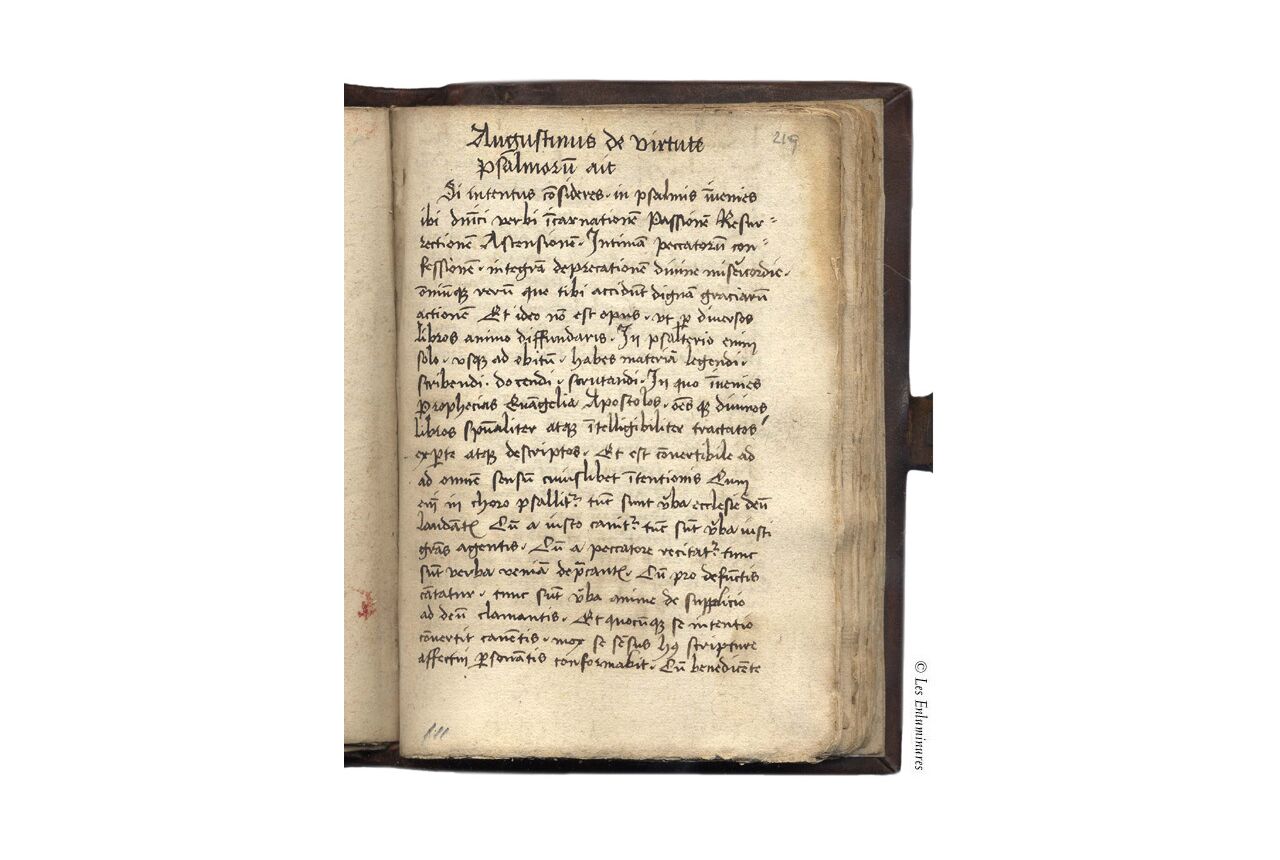 Augustinus de virtute
219
psalmorū ait
Si intentus cōsideres · in psalmis īuenies
ibi dn̄ici verbi īcarnationē Passionē Resur⸗
rectionē Ascensionē · Intimā peccatorū con⸗
fessionē · integrā deprecationē divine misericordie ·
omniūqꝫ rerū que tibi accidūt dignā graciarū
actionē Et ideo nō est opus · vt ꝑ diuersos
libros animo diffundaris · In psalterio enim
solo · vsqꝫ ad obitū · habes materiā legendi ·
scribendi · docendi · scrutandi · In quo īuenies
Prophecias Euāgelia Apostolos · oēsqꝫ diuinos
libros spūaliter atqꝫ ītelligibiliter tractatos
ex ꝑte atqꝫ descriptos · Et est cōuertibile ad
ad omnē sensū cuiuslibet ītentionis Cum
eī in choro psallitr tūc sunt v̄ba ecclesie deū
laudātꝭ Cū a iusto canitr tūc sūt v̄ba iusti
grās agentis · Cū a peccatore recitatr tunc
sūt verba veniā dep̄cantꝭ · Cū pro defūctis
cātatur · tunc sūt v̄ba anime de supplicio
ad deū clamantis · Et quocūqꝫ se intentio
cōuertit canētis · mox se sēsus hꝰ scripture
affectui ꝑsonātis conformabit · Cū benedicēte
© Les Enluminures